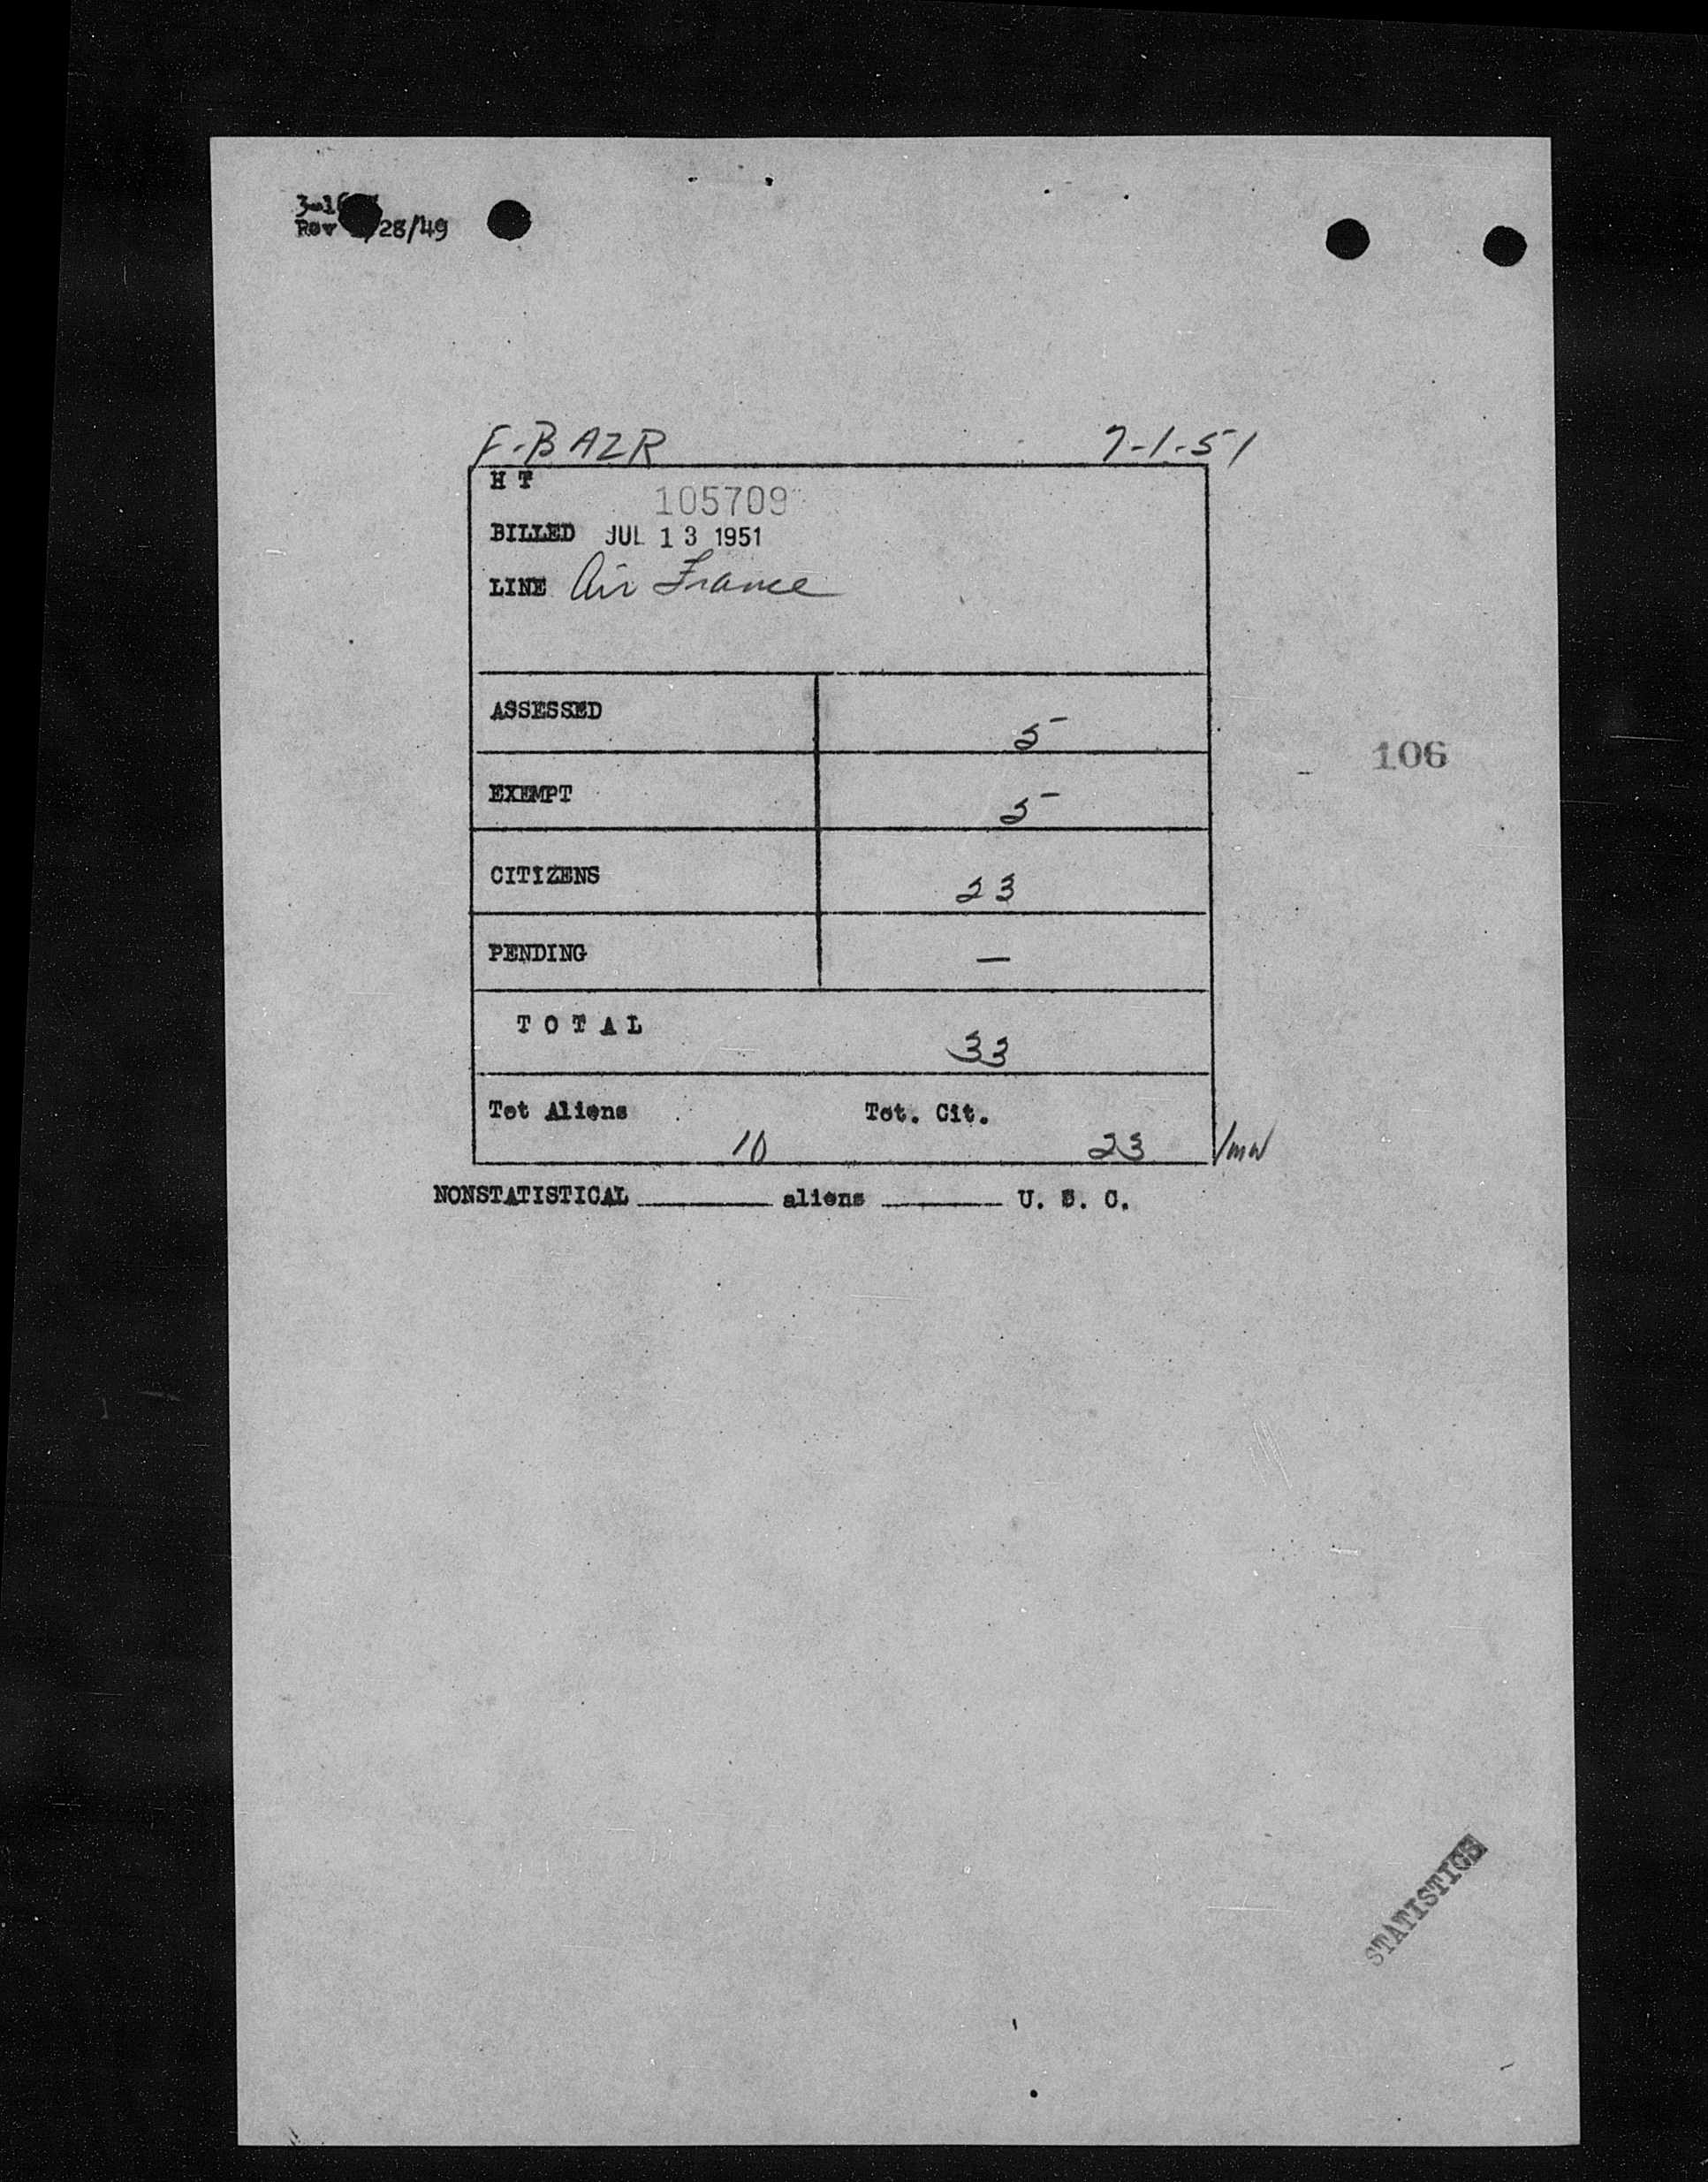 Rev /28/49
F-BAZR 7-1-51
H T
105709
BILLED JUL 13 1951
LINE Air France
ASSESSED 5
106
EXEMPT 5
CITIZENS 23
PENDING —
TOTAL 33
Tot Aliens Tot. Cit.
10 23 /mw
NONSTATISTICAL ______ aliens ______ U. S. C.
STATISTICS